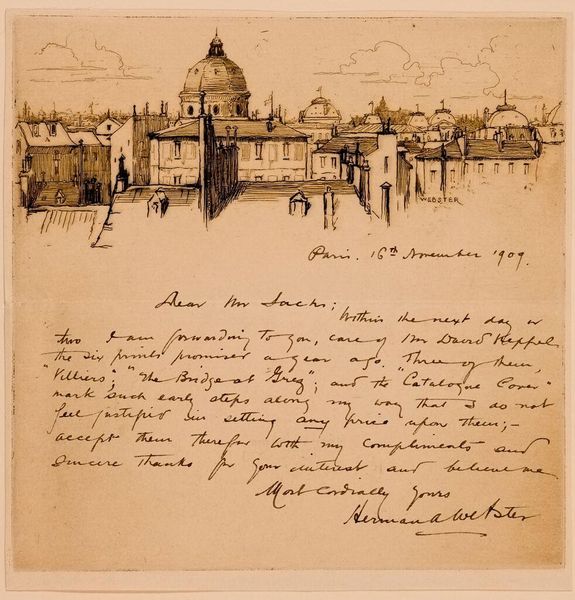 WEBSTER
Paris. 16th November 1909.
Dear Mr Sachs;
Within the next day or
two I am forwarding to you, care of Mr David Keppel
the six prints promised a year ago. Three of them,
"Villiers", "The Bridge at Grez", and the "Catalogue Cover"
mark such early steps along my way that I do not
feel justified in setting any price upon them;—
accept them therefor with my compliments and
sincere thanks for your interest and believe me
Most Cordially Yours
Herman A Webster